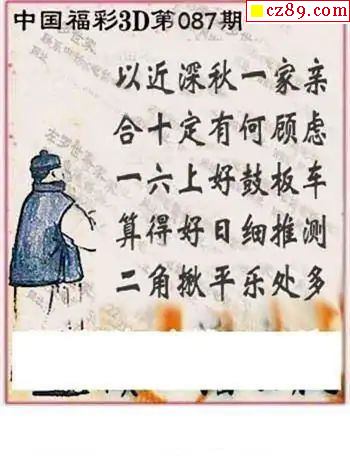 cz89.com
中国福彩3D第087期
以近深秋一家亲
合十定有何顾虑
一六上好鼓板车
算得好日细推测
二角揪平乐处多